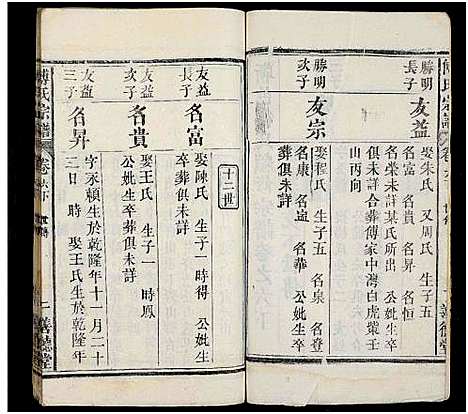 勝明
長子
友益
娶朱氏 又周氏 生子五
名富 名貴 名昇 名恒
名榮未詳某氏所出 公妣生卒
俱未詳合葬傅家中灣白虎業壬
山丙向
勝明
次子
友宗
娶程氏 生子五 名泉 名登
名康 名遠 名華 公妣生卒
葬俱未詳
十二世
友益
長子
名富
娶陳氏 生子一 時得 公妣生
卒葬俱未詳
友益
次子
名貴
娶王氏 生子一 時鳳
公妣生卒葬俱未詳
友益
三子
名昇
字永頼生於乾隆年十一月二十
日 時 娶王氏生於乾隆年
傅氏宗譜
卷六下
二
善德堂